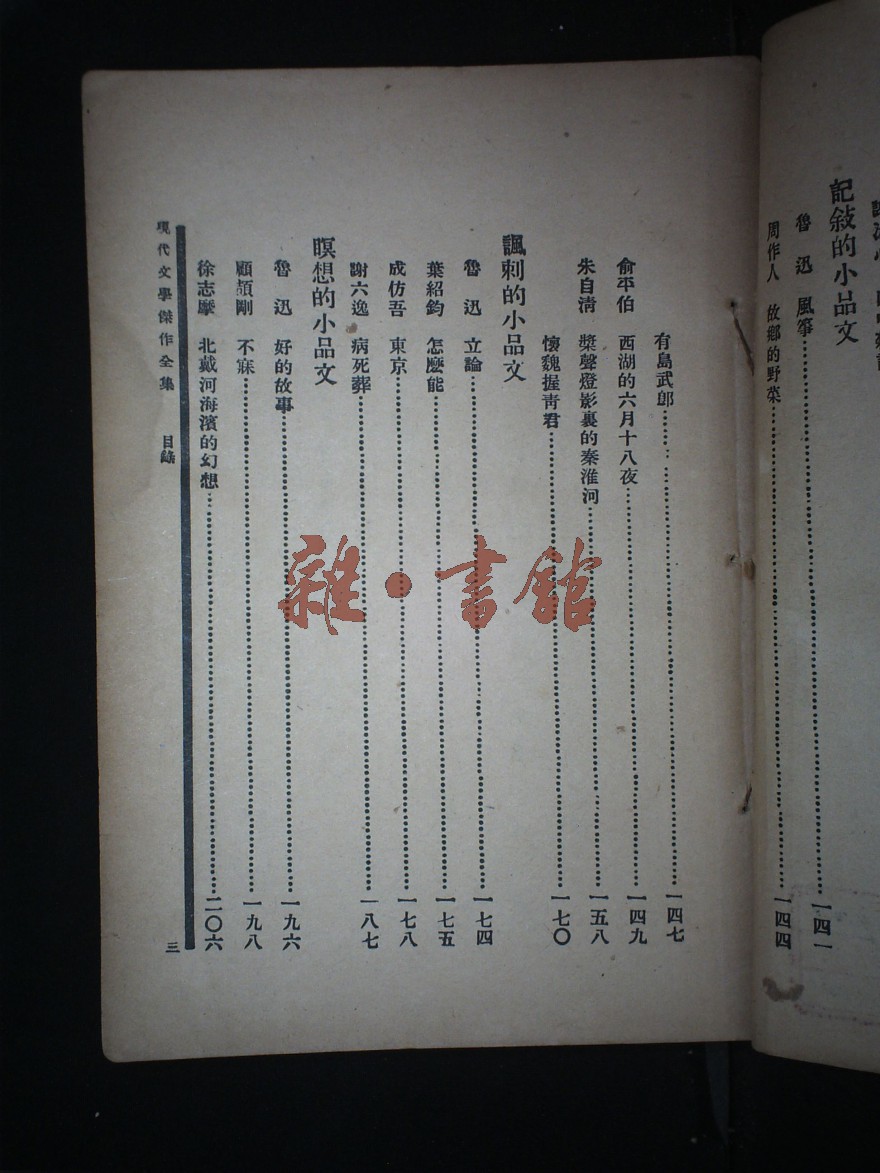 記敍的小品文
魯迅 風箏……一四一
周作人 故鄉的野菜……一四四
有島武郎……一四七
俞平伯 西湖的六月十八夜……一四九
朱自淸 槳聲燈影裏的秦淮河……一五八
懷魏握靑君……一七〇
諷刺的小品文
魯迅 立論……一七四
葉紹鈞 怎麼能……一七五
成仿吾 東京……一七八
謝六逸 病死葬……一八七
瞑想的小品文
魯迅 好的故事……一九六
顧頡剛 不寐……一九八
徐志摩 北戴河海濱的幻想……二〇六
現代文學傑作全集 目錄
三
雜·書館